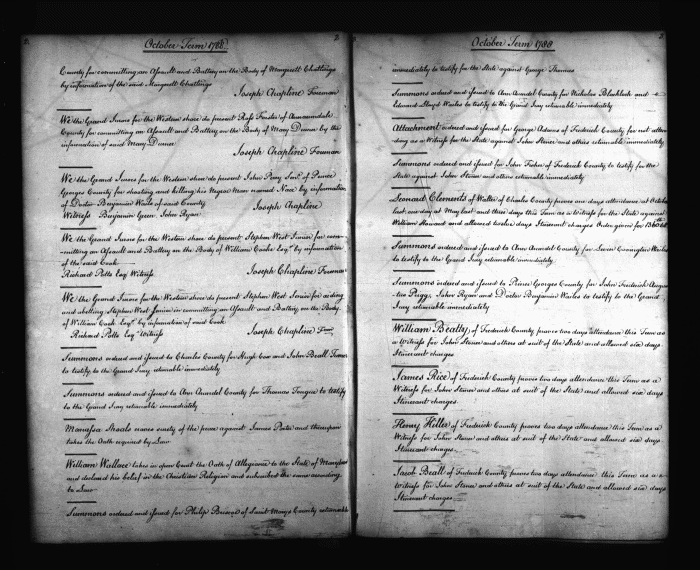 October Term 1788
County for committing an Assault and Battery on the Body of Margrett Chattings
by information of the said Margrett Chattings
Joseph Chapline Foreman
We the Grand Jurors for the Western shore do present Foster of Annarundale
County for committing an Assault and Battery on the Body of Mary Dunn by the
information of said Mary Dunn
Joseph Chapline Foreman
We the Grand Jurors for the Western shore do present John Perry of Prince
Georges County for shooting and killing his Negroe Man named Nace by information
of Doctor Benjamin Wailes of said County
Joseph Chapline
Witness Benjamin Green John Ryan
We the Grand Jurors for the Western shore do present Stephen West Junior for com-
mitting an Assault and Battery on the Body of William Cooke Esqr. by information
of the said Cooke
Joseph Chapline Foreman
Richard Potts Esq Witness
We the Grand Jurors for the Western shore do present Stephen West Senior for aiding
and abetting Stephen West Junior in committing an Assault and Battery on the Body
of William Cook Esqr. by information of said Cook
Richard Potts Esqr Witness
Joseph Chapline
Summons ordered and issued to Charles County for Hugh Cox and John Beall
to testify to the Grand Jury returnable immediately
Summons ordered and issued to Ann Arundel County for Thomas Tongue to testify
to the Grand Jury returnable immediately
of the peace against James and thereupon
takes the Oath required by Law
William Wallace takes in open Court the Oath of Allegiance to the State of Maryland
and declared his belief in the Christian Religion and subscribed the same according
to Law
Summons ordered and issued for Philip Briscoe of Saint Marys County returnable
October Term 1788
immediately to testify for the State against George Thomas
Summons ordered and issued to Ann Arundel County for Nicholas Blacklock and
Edward Lloyd Wailes to testify to the Grand Jury returnable immediately
Attachment ordered and issued for George Adams of Frederick County for not atten-
ding as a Witness for the State against John Stoner and others returnable immediately
Summons ordered and issued for John Fisher of Frederick County to testify for the
State against John Stoner and others returnable immediately
Leonard Clements of Walter of Charles County proves one days attendance at October
last, one day at May last and three days this Term as a Witness for the State against
William Howard and allowed twelve days Itinerant charges Order given for
Summons ordered and issued to Ann Arundel County for Levin Covington Wailes
to testify to the Grand Jury returnable immediately
Summons ordered and issued to Prince Georges County for John Frederick Augus-
tus Priggs, John Ryan and Doctor Benjamin Wailes to testify to the Grand
Jury returnable immediately
William Beatty of Frederick County proves two days attendance this Term as
a Witness for John Stoner and others at suit of the State and allowed six days
Itinerant charges
James Rice of Frederick County proves two days attendance this Term as a
Witness for John Stoner and others at suit of the State and allowed six days
Itinerant charges.
Henry Hiller of Frederick County proves two days attendance this Term as a
Witness for John Stoner and others at suit of the State and allowed six days
Itinerant charges
Jacob Beall of Frederick County proves two days attendance this Term as a
Witness for John Stoner and others at suit of the State and allowed six days
Itinerant charges